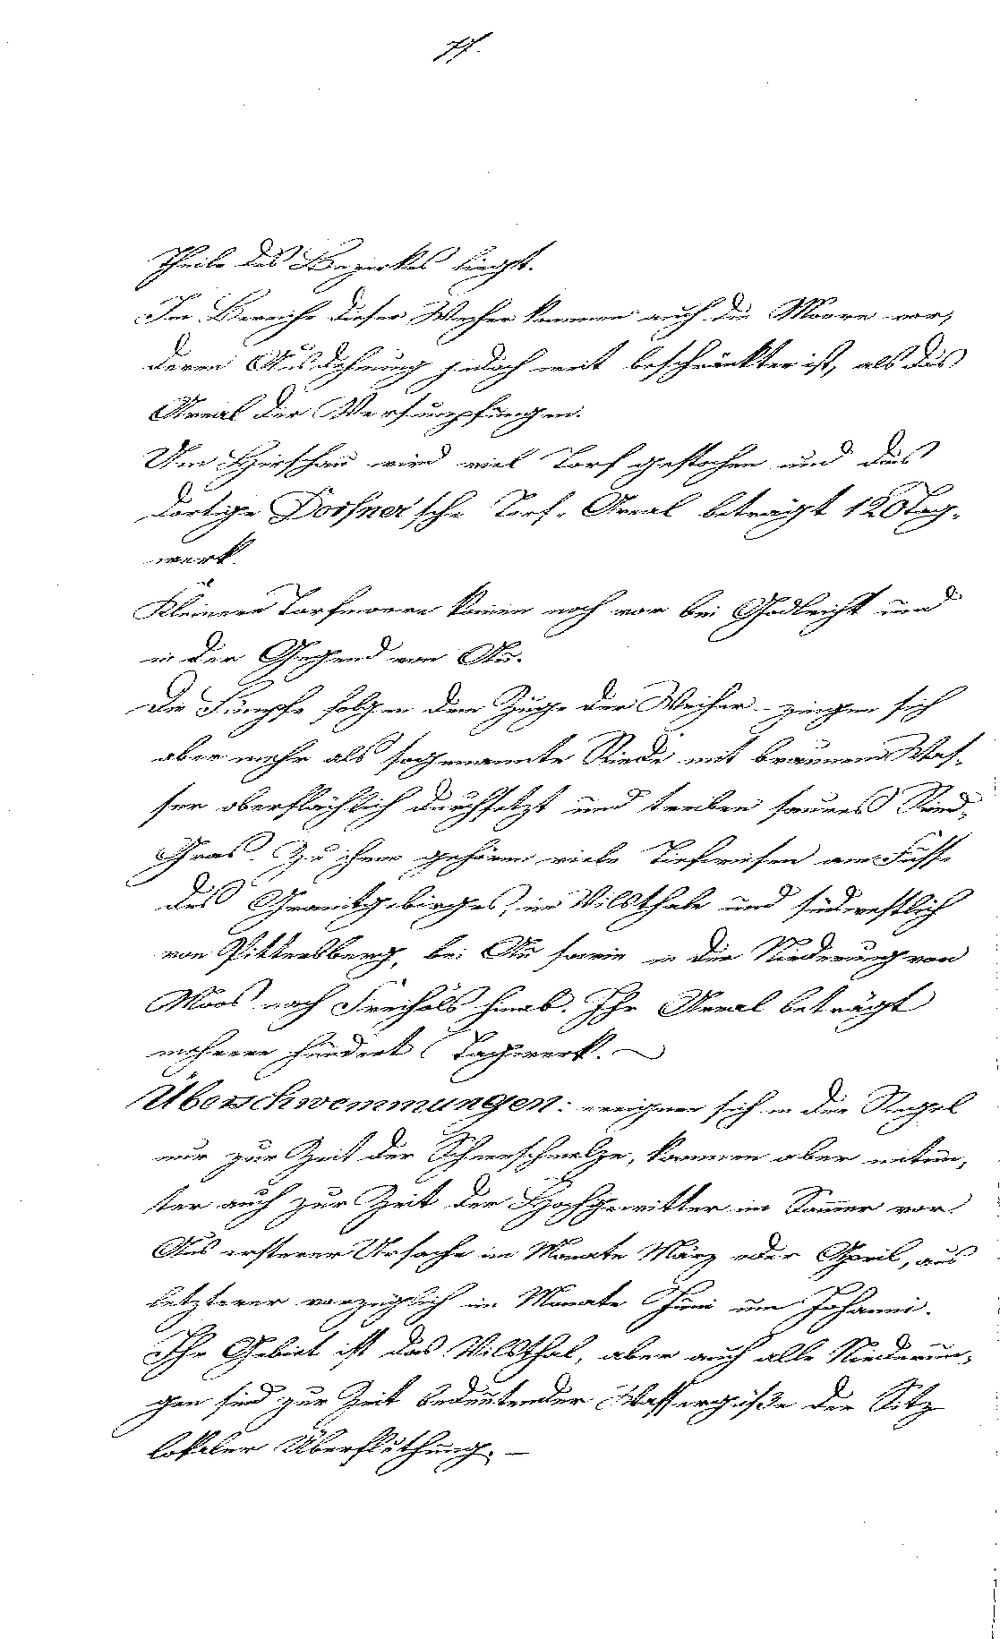 77.
Theile des Bezirkes liegt.
Im Bereiche dieser Weyher kommen auch die Moore vor,
deren Ausdehnung jedoch weit beschränkter ist, als das
Areal der Versumpfungen.
Um Hirschau wird viel Torf gestochen und das
dortige Dorfner'sche Torf-Areal beträgt 120 Tag-
werk.
Kleinere Torfmoore kom̅en noch vor bei Godlricht und
in der Gegend von Au.
Die Sümpfe folgen dem Zuge der Weiher – zeigen sich
aber mehr als sogenannte Riede mit braunem Was-
ser oberflächlich durchsetzt und treiben saures Ried-
Gras. Zu ihnen gehören viele Tiefwiesen am Fuße
des Granitgebirges, im Vilsthale und südwestlich
von Pittersberg, bei Au sowie in der Niederung von
Moos nach Freihöls hinab. Ihr Areal beträgt
mehrere hundert Tagwerk. –
Überschwemmungen: ereignen sich in der Regel
nur zur Zeit der Schneeschmelze, kommen aber mitun-
ter auch zur Zeit der Hochgewitter im Som̅er vor.
Aus ersterer Ursache im Monate März oder April, aus
letzterer vorzüglich im Monate Juni um Johanni.
Ihr Gebiet ist das Vilsthal, aber auch alle Niederun-
gen sind zur Zeit bedeutender Wassergüße der Sitz
lokaler Überfluthung. –